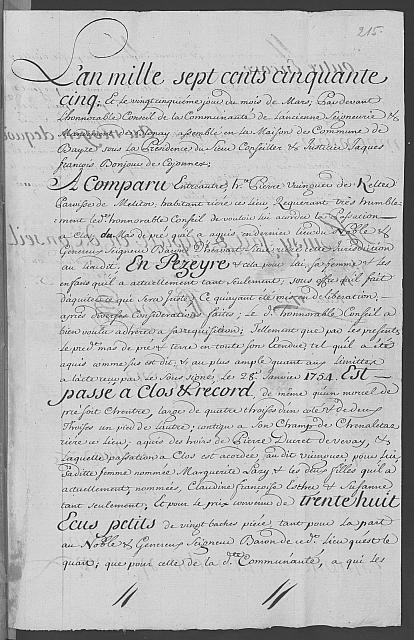 215.
L'an mille sept cents cinquante
cinq; Et le vingt cinquieme jour du mois de Mars; Pardevant
L'honnorable Conseil de la Communauté de Lancienne Seigneurie &
assemblé en la Maison de Commune de
sous la Présidence du Sieur Conseiller & Justicier Jaques
François Bonjour de
A Comparu Entr'autres, h.ble Pierre
Paroisse de habitant riere ce lieu Requerant tres humble-
ment led.t honnorable Conseil de vouloir lui accorder la Passation
a Clos, du Mas de pré quil a aquis en dernier lieu du Noble &
Genereux Seigneur Baron
au lieudit, En Pezeyre & cela pour lui, sa femme & les
enfans quil a actuellement tant seulement, sous offre quil fait
d'aquiter ce que sera juste; Ce quayant été mis en deliberation,
apres diverses Considerations faites; le d.t honnorable Conseil a
bien voulu adherer a sa requisition; Tellement que par les presentes
le pred.t mas de pré & terre en toute son Etendue, tel quil a été
aquis comme sus est dit, & au plus ample quant aux Limittes
a l'acte reçu par le Sous signé, le 28.e Janvier 1754. Est
passé a Clos & record, de même qu'un morcel de
pré soit Cheutre, large de quatre thoises d'un coté & de deux
Thoises un pied de l'autre; contigu a son Champ de
riere ce Lieu; aquis des hoirs de Pierre Ducret de vevay, &
Laquelle passation a Clos est acordée au dit pour lui
sa ditte femme nommée Marguerite & les dttes filles quil a
actuellement, nommées, Claudine Françoise Esther & Susanne
tant seulement, Et pour le prix convenu de trente huit
Ecus petits de vingt baches piece, tant pour la part
au Noble & Genereux Seigneur Baron de ce d.t Lieu qu'est le
quart; que pour celle de la d.tte Communauté, a qui les